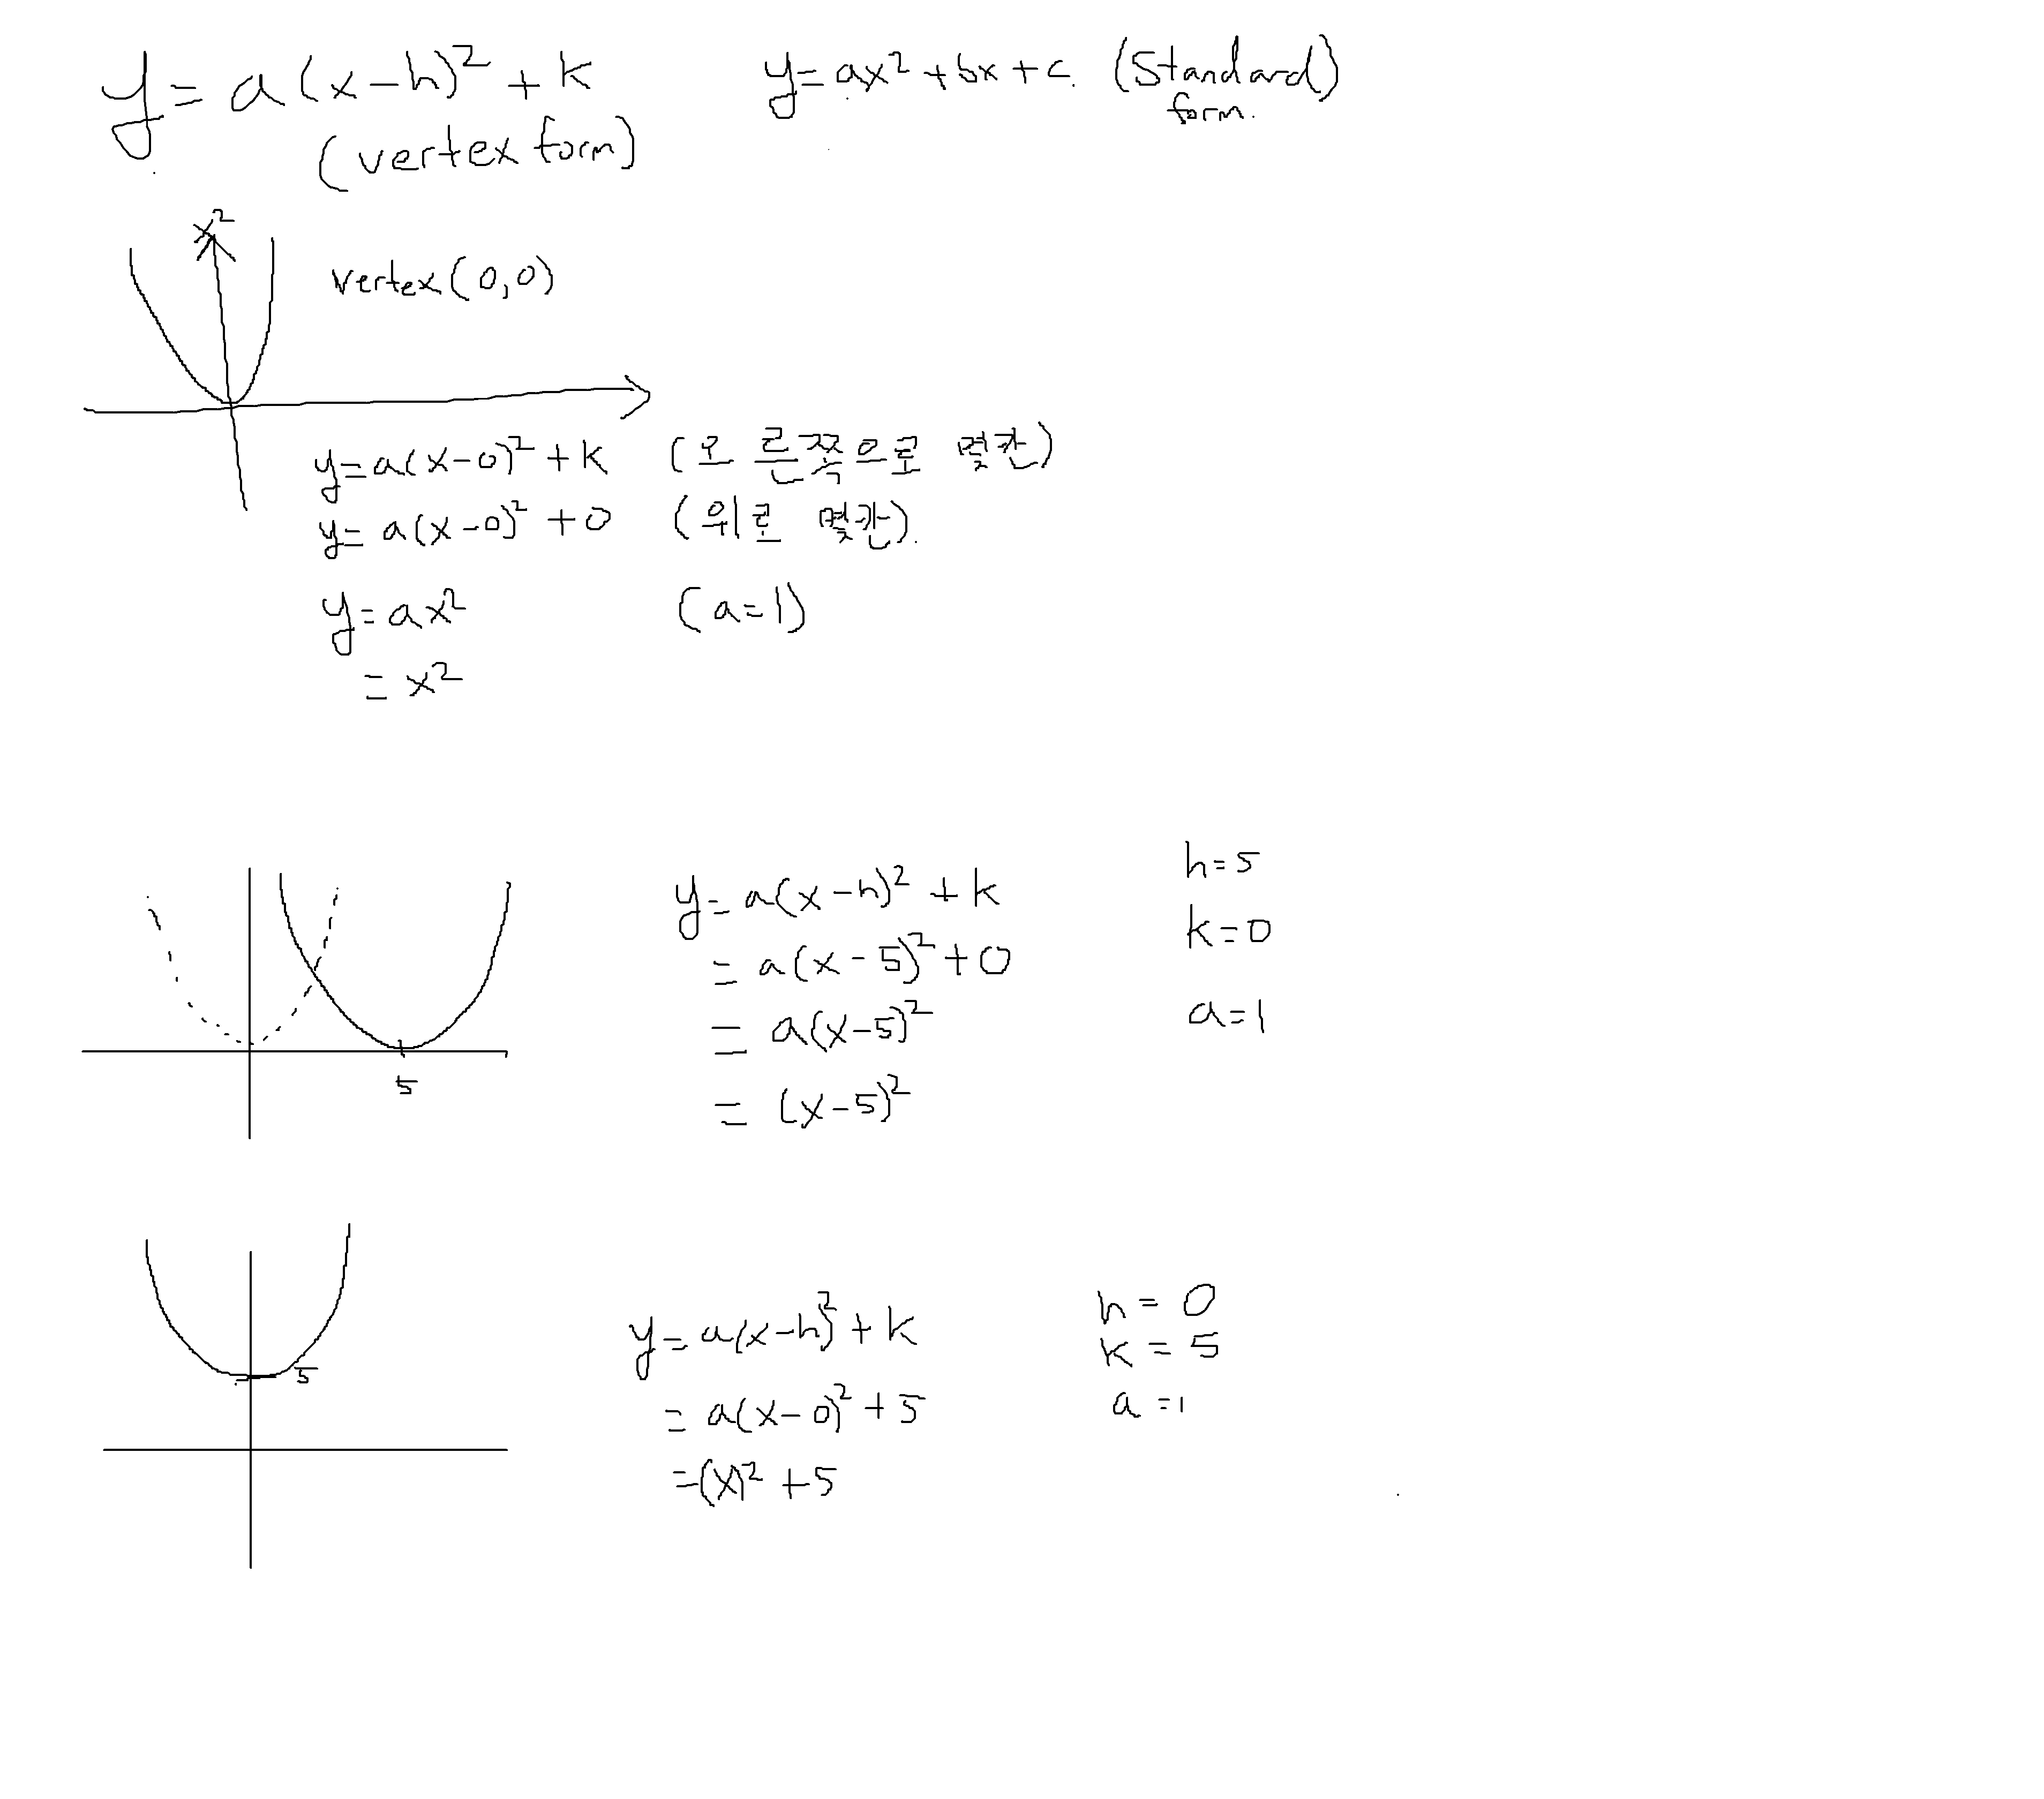 y = a(x-h)² + k
(vertex form)
y = ax² + bx + c. (Standard)
form.
x²
vertex (0,0)
y = a(x-0)² + k (오른쪽으로 몇칸)
y = a(x-0)² + 0 (위로 몇칸).
y = ax² (a=1)
= x²
5
y = a(x-h)² + k
= a(x-5)² + 0
= a(x-5)²
= (x-5)²
h=5
k=0
a=1
5
y = a(x-h)² + k
= a(x-0)² + 5
= (x)² + 5
h = 0
k = 5
a = 1